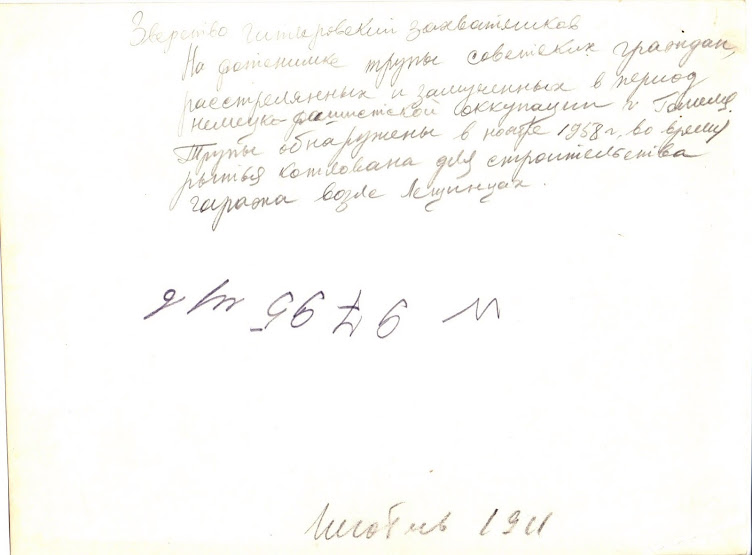 Зверство гитлеровских захватчиков
На фотоснимке трупы советских граждан,
расстрелянных и замученных в период
немецко-фашистской оккупации г. Гомеля.
Трупы обнаружены в ноябре 1958 г. во время
рытья котлована для строительства
гаража возле Лещинцах.
9795